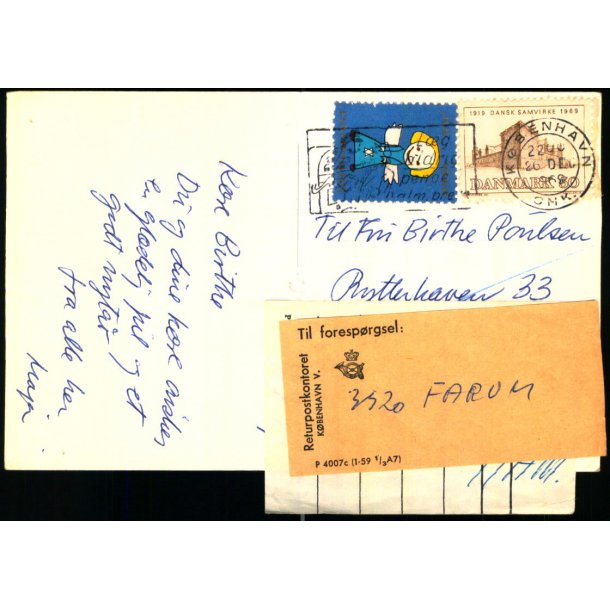 Kære Birthe
Du og dine kære ønskes
en glædelig jul og et
godt nytår
fra alle her
1919 DANSK SAMVIRKE 1969
DANMARK 60
KØBENHAVN
26 DEC
1969
OMK.
Til Fru Birthe Poulsen
Rytterhaven 33
Til forespørgsel:
Returpostkontoret
KØBENHAVN V.
3520 FARUM
P 4007c (1-59 1/3A7)